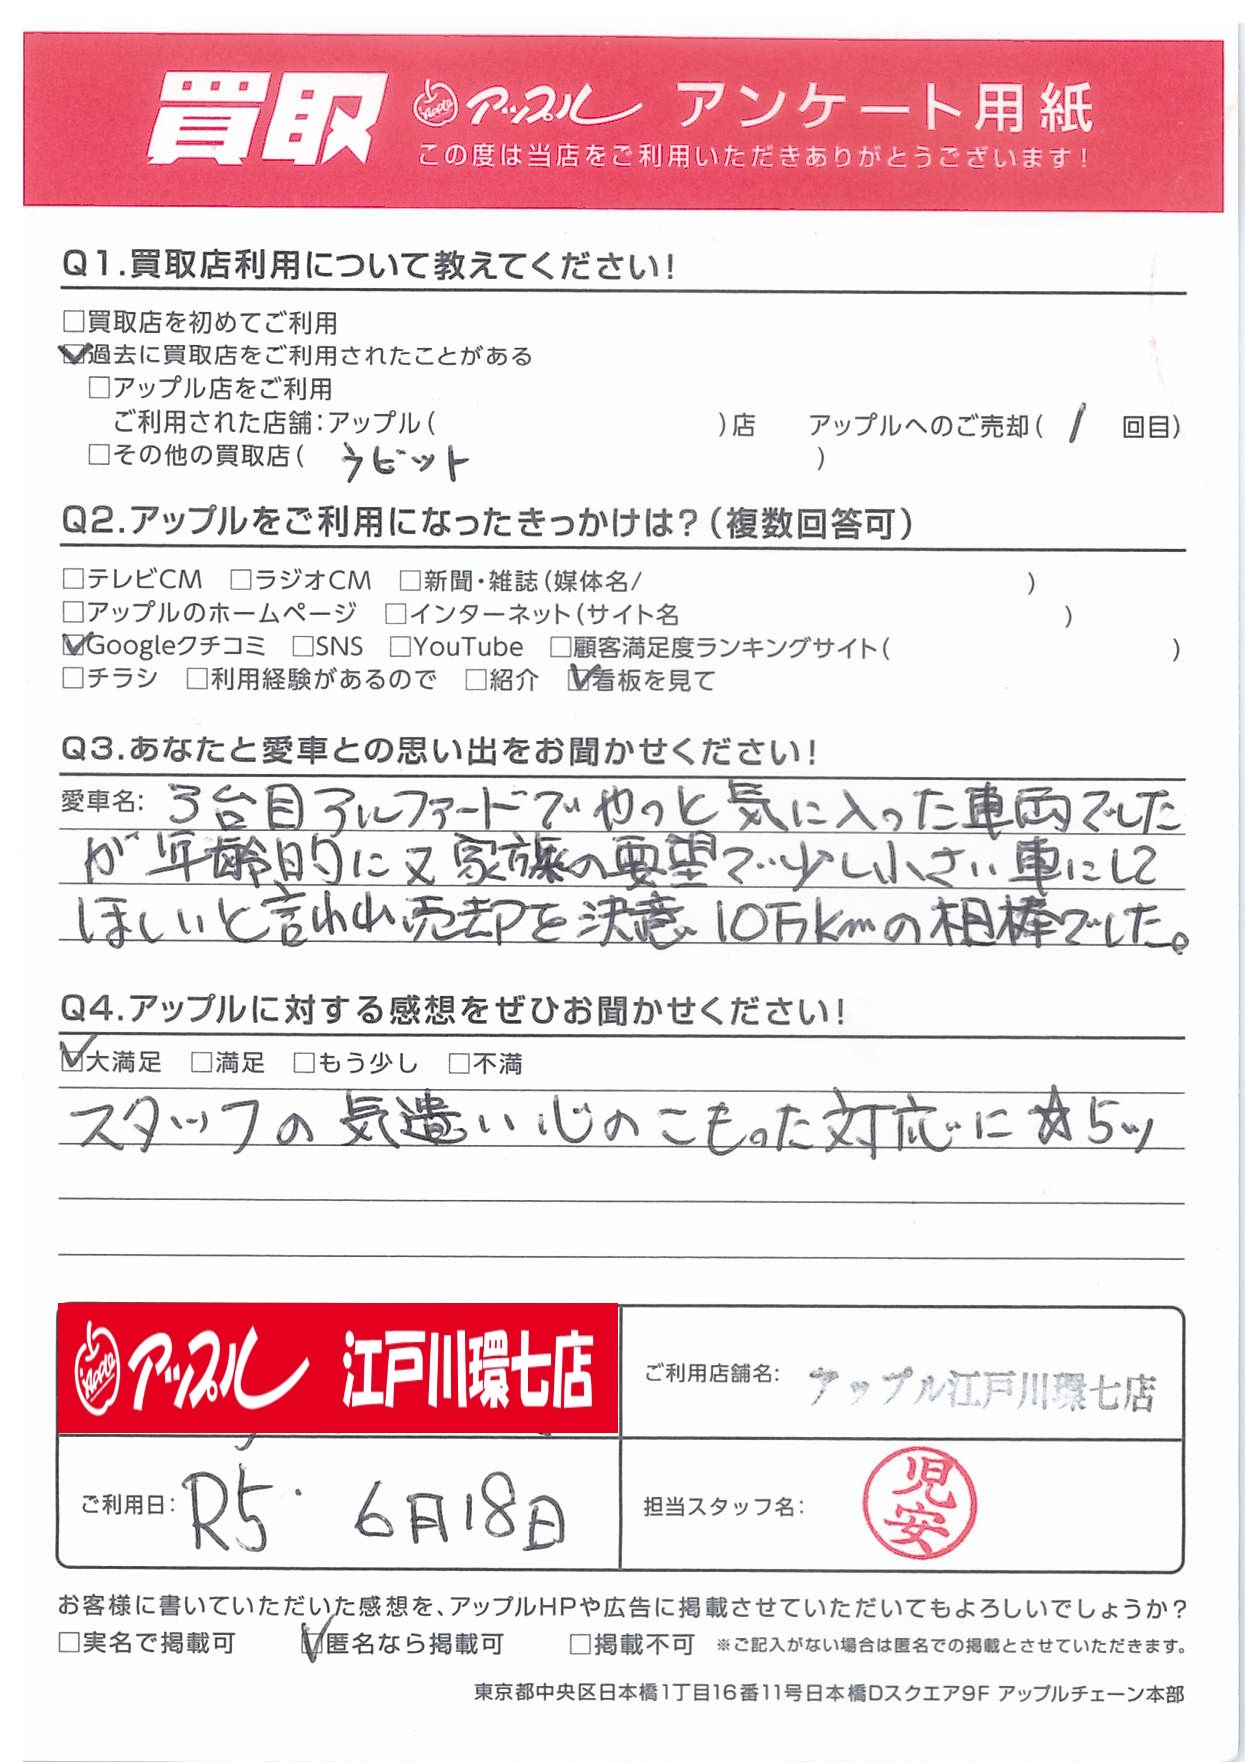 買取 Apple アップル アンケート用紙
この度は当店をご利用いただきありがとうございます!
Q1.買取店利用について教えてください!
□買取店を初めてご利用
☑過去に買取店をご利用されたことがある
□アップル店をご利用
ご利用された店舗:アップル( )店 アップルへのご売却( 1 回目)
□その他の買取店( ラビット )
Q2.アップルをご利用になったきっかけは?(複数回答可)
□テレビCM □ラジオCM □新聞・雑誌(媒体名/ )
□アップルのホームページ □インターネット(サイト名 )
☑Googleクチコミ □SNS □YouTube □顧客満足度ランキングサイト( )
□チラシ □利用経験があるので □紹介 ☑看板を見て
Q3.あなたと愛車との思い出をお聞かせください!
愛車名: 3台目アルファードでやっと気に入った車両でした
が年齢的に又家族の要望で少し小さい車にして
ほしいと言われ売却を決意 10万kmの相棒でした。
Q4.アップルに対する感想をぜひお聞かせください!
☑大満足 □満足 □もう少し □不満
スタッフの気遣い心のこもった対応に☆5ツ
Apple アップル 江戸川環七店
ご利用店舗名: アップル江戸川環七店
ご利用日: R5. 6月18日
担当スタッフ名: 児安
お客様に書いていただいた感想を、アップルHPや広告に掲載させていただいてもよろしいでしょうか?
□実名で掲載可 ☑匿名なら掲載可 □掲載不可 ※ご記入がない場合は匿名での掲載とさせていただきます。
東京都中央区日本橋1丁目16番11号日本橋Dスクエア9F アップルチェーン本部